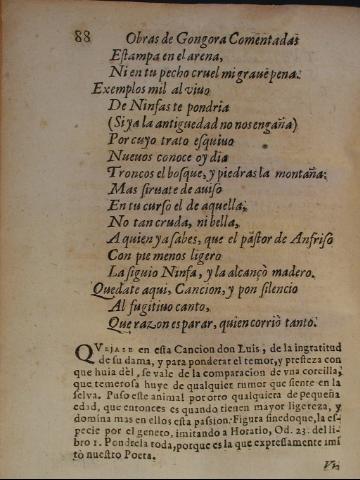 88 Obras de Gongora Comentadas
Estampa en el arena,
Ni en tu pecho cruel mi graue pena.
Exemplos mil al viuo
De Ninfas te pondria
(Si ya la antiguedad no nos engaña)
Por cuyo trato esquiuo
Nueuos conoce oy dia
Troncos el bosque, y piedras la montaña:
Mas siruate de auiso
En tu curso el de aquella,
No tan cruda, ni bella,
A quien ya sabes, que el pastor de Anfriso
Con pie menos ligero
La siguio Ninfa, y la alcançò madero.
Quedate aqui, Cancion, y pon silencio
Al fugitiuo canto,
Que razon es parar, quien corriò tanto.
QVEJASE en esta Cancion don Luis, de la ingratitud
de su dama, y para ponderar el temor, y presteza con
que huia dèl, se vale de la comparacion de vna corcilla,
que temerosa huye de qualquier rumor que siente en la
selva. Puso este animal por otro qualquiera de pequeña
edad, que entonces es quando tienen mayor ligereza, y
domina mas en ellos esta passion. Figura sinedoque, la es-
pecie por el genero, imitando a Horatio, Od. 23. del li-
bro 1. Pondrela toda, porque es la que expressamente imi
tò nuestro Poeta.